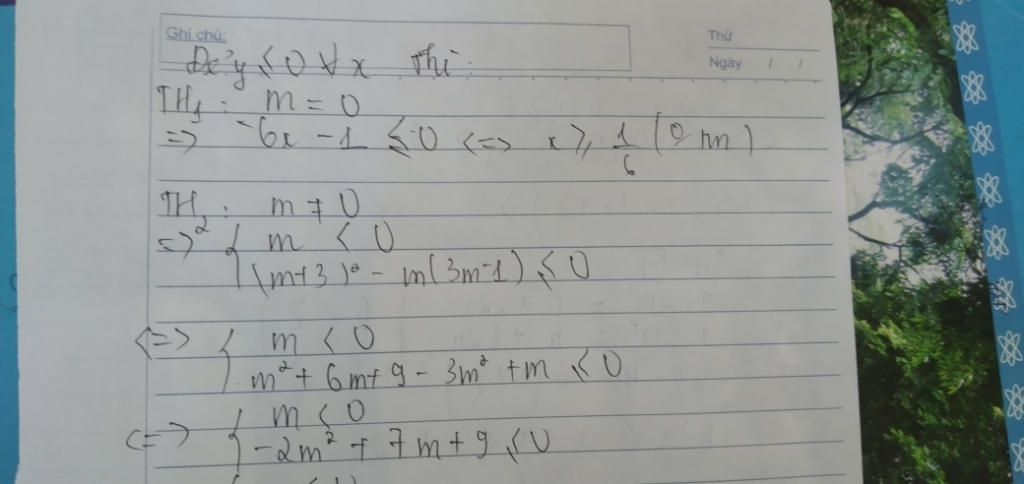 Ghi chú:
Thứ
Ngày / /
Để y ≤ 0 ∀ x thì:
TH₁: m = 0
=> -6x - 1 ≤ 0 <=> x ≥ 1/6 (0 nn)
TH₂: m ≠ 0
=> { m < 0
(m+3)² - m(3m-1) ≤ 0
<=> { m < 0
m² + 6m + 9 - 3m² + m ≤ 0
<=> { m < 0
-2m² + 7m + 9 ≤ 0